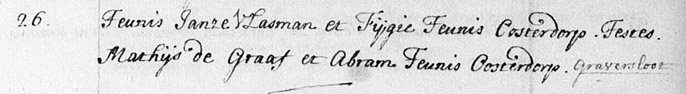 26. Teunis Janze Vlasman et Fijgie Teunis Oosterdorp. Testes.
Mathijs de Graaf et Abram Teunis Oosterdorp. Graversloot